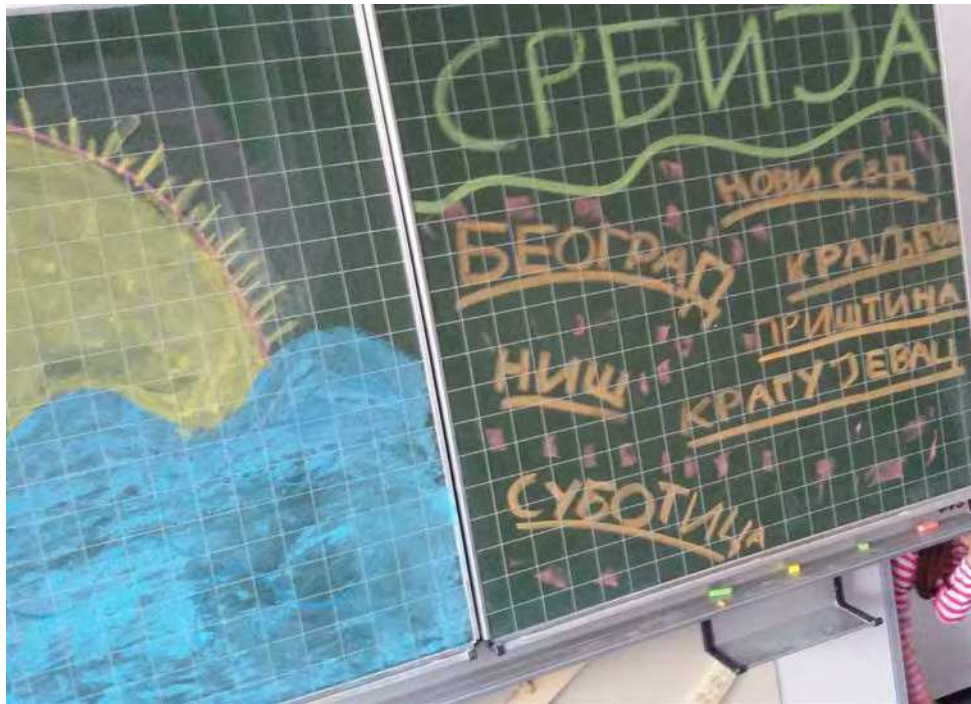 СРБИЈА
НОВИ САД
БЕОГРАД
КРАЉЕВ
ПРИШТИНА
НИШ
КРАГУЈЕВАЦ
СУБОТИЦА